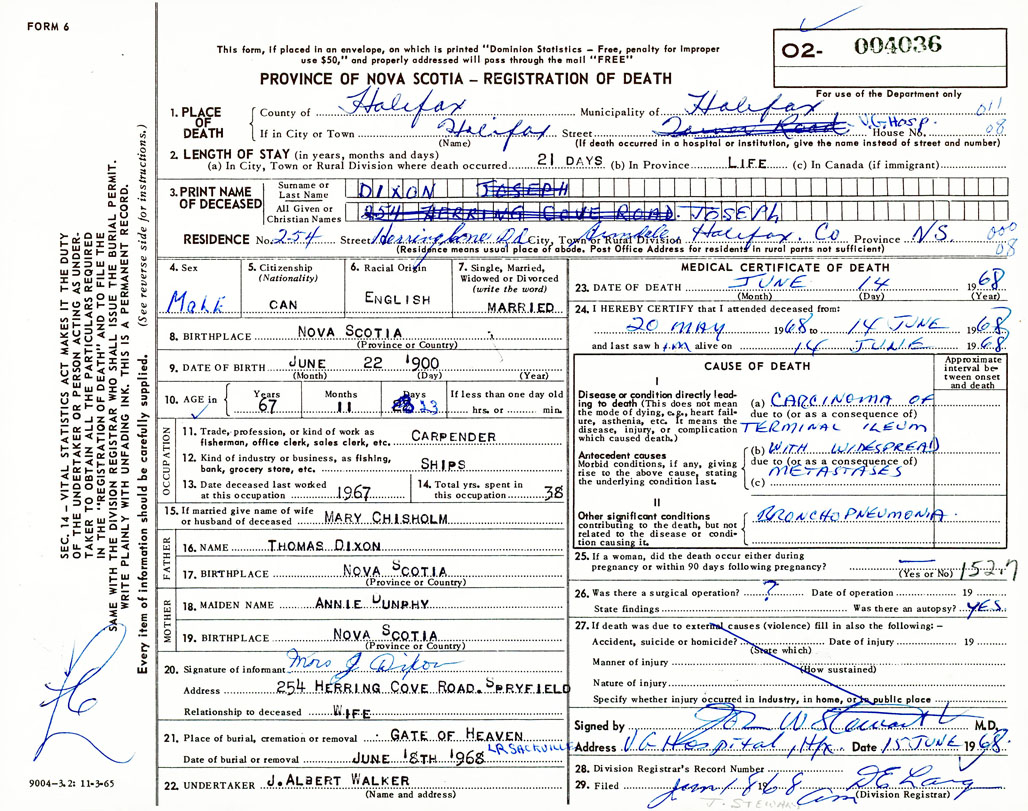 FORM 6
This form, if placed in an envelope, on which is printed "Dominion Statistics – Free, penalty for improper
use $50," and properly addressed will pass through the mail "FREE"
O2- 004036
PROVINCE OF NOVA SCOTIA – REGISTRATION OF DEATH
For use of the Department only
SEC. 14 – VITAL STATISTICS ACT MAKES IT THE DUTY
OF THE UNDERTAKER OR PERSON ACTING AS UNDER-
TAKER TO OBTAIN ALL THE PARTICULARS REQUIRED
IN THE "REGISTRATION OF DEATH" AND TO FILE THE
SAME WITH THE DIVISION REGISTRAR WHO SHALL ISSUE THE BURIAL PERMIT.
WRITE PLAINLY WITH UNFADING INK. THIS IS A PERMANENT RECORD.
Every item of information should be carefully supplied. (See reverse side for instructions.)
1. PLACE OF DEATH
County of Halifax Municipality of Halifax 011
If in City or Town Halifax Street Tower Road V.G. HOSP. House No. 08
(Name) (If death occurred in a hospital or institution, give the name instead of street and number)
2. LENGTH OF STAY (in years, months and days)
(a) In City, Town or Rural Division where death occurred 21 DAYS (b) In Province LIFE (c) In Canada (if immigrant)
3. PRINT NAME OF DECEASED
Surname or Last Name DIXON JOSEPH
All Given or Christian Names 254 HERRING COVE ROAD. JOSEPH
RESIDENCE No. 254 Street City, Town or Rural Division Halifax Co Province N.S. 000
(Residence means usual place of abode. Post Office Address for residents in rural parts not sufficient) 08
4. Sex MALE
5. Citizenship (Nationality) CAN
6. Racial Origin ENGLISH
7. Single, Married, Widowed or Divorced (write the word) MARRIED
8. BIRTHPLACE NOVA SCOTIA
(Province or Country)
9. DATE OF BIRTH JUNE 22 1900
(Month) (Day) (Year)
10. AGE in Years 67 Months 11 Days 23 If less than one day old hrs. or min.
OCCUPATION
11. Trade, profession, or kind of work as
fisherman, office clerk, sales clerk, etc. CARPENDER
12. Kind of industry or business, as fishing,
bank, grocery store, etc. SHIPS
13. Date deceased last worked
at this occupation 1967
14. Total yrs. spent in
this occupation 38
15. If married give name of wife
or husband of deceased MARY CHISHOLM
FATHER
16. NAME THOMAS DIXON
17. BIRTHPLACE NOVA SCOTIA
(Province or Country)
MOTHER
18. MAIDEN NAME ANNIE DUNPHY
19. BIRTHPLACE NOVA SCOTIA
(Province or Country)
20. Signature of informant Mrs J Dixon
Address 254 HERRING COVE ROAD. SPRYFIELD
Relationship to deceased WIFE
21. Place of burial, cremation or removal GATE OF HEAVEN
LR. SACKVILLE
Date of burial or removal JUNE 18TH 1968
22. UNDERTAKER J. ALBERT WALKER
(Name and address)
9004-3.2: 11-3-65
MEDICAL CERTIFICATE OF DEATH
23. DATE OF DEATH JUNE 14 1968
(Month) (Day) (Year)
24. I HEREBY CERTIFY that I attended deceased from:
20 MAY 1968 to 14 JUNE 1968
and last saw him alive on 14 JUNE 1968
CAUSE OF DEATH
Approximate interval between onset and death
I
Disease or condition directly leading to death (This does not mean the mode of dying, e.g., heart failure, asthenia, etc. It means the disease, injury, or complication which caused death.)
(a) CARCINOMA OF
due to (or as a consequence of)
TERMINAL ILEUM
Antecedent causes
Morbid conditions, if any, giving rise to the above cause, stating the underlying condition last.
(b) WITH WIDESPREAD
due to (or as a consequence of)
METASTASES
(c)
II
Other significant conditions
contributing to the death, but not related to the disease or condition causing it.
BRONCHOPNEUMONIA.
25. If a woman, did the death occur either during
pregnancy or within 90 days following pregnancy? —
(Yes or No) 152.7
26. Was there a surgical operation? ? Date of operation 19
State findings Was there an autopsy? YES.
27. If death was due to external causes (violence) fill in also the following: –
Accident, suicide or homicide? Date of injury 19
(State which)
Manner of injury
(How sustained)
Nature of injury
Specify whether injury occurred in industry, in home, or in public place
Signed by W Stewart M.D.
Address V.G. Hospital, Hfx Date 15 JUNE 1968.
28. Division Registrar's Record Number
29. Filed
(Division Registrar)